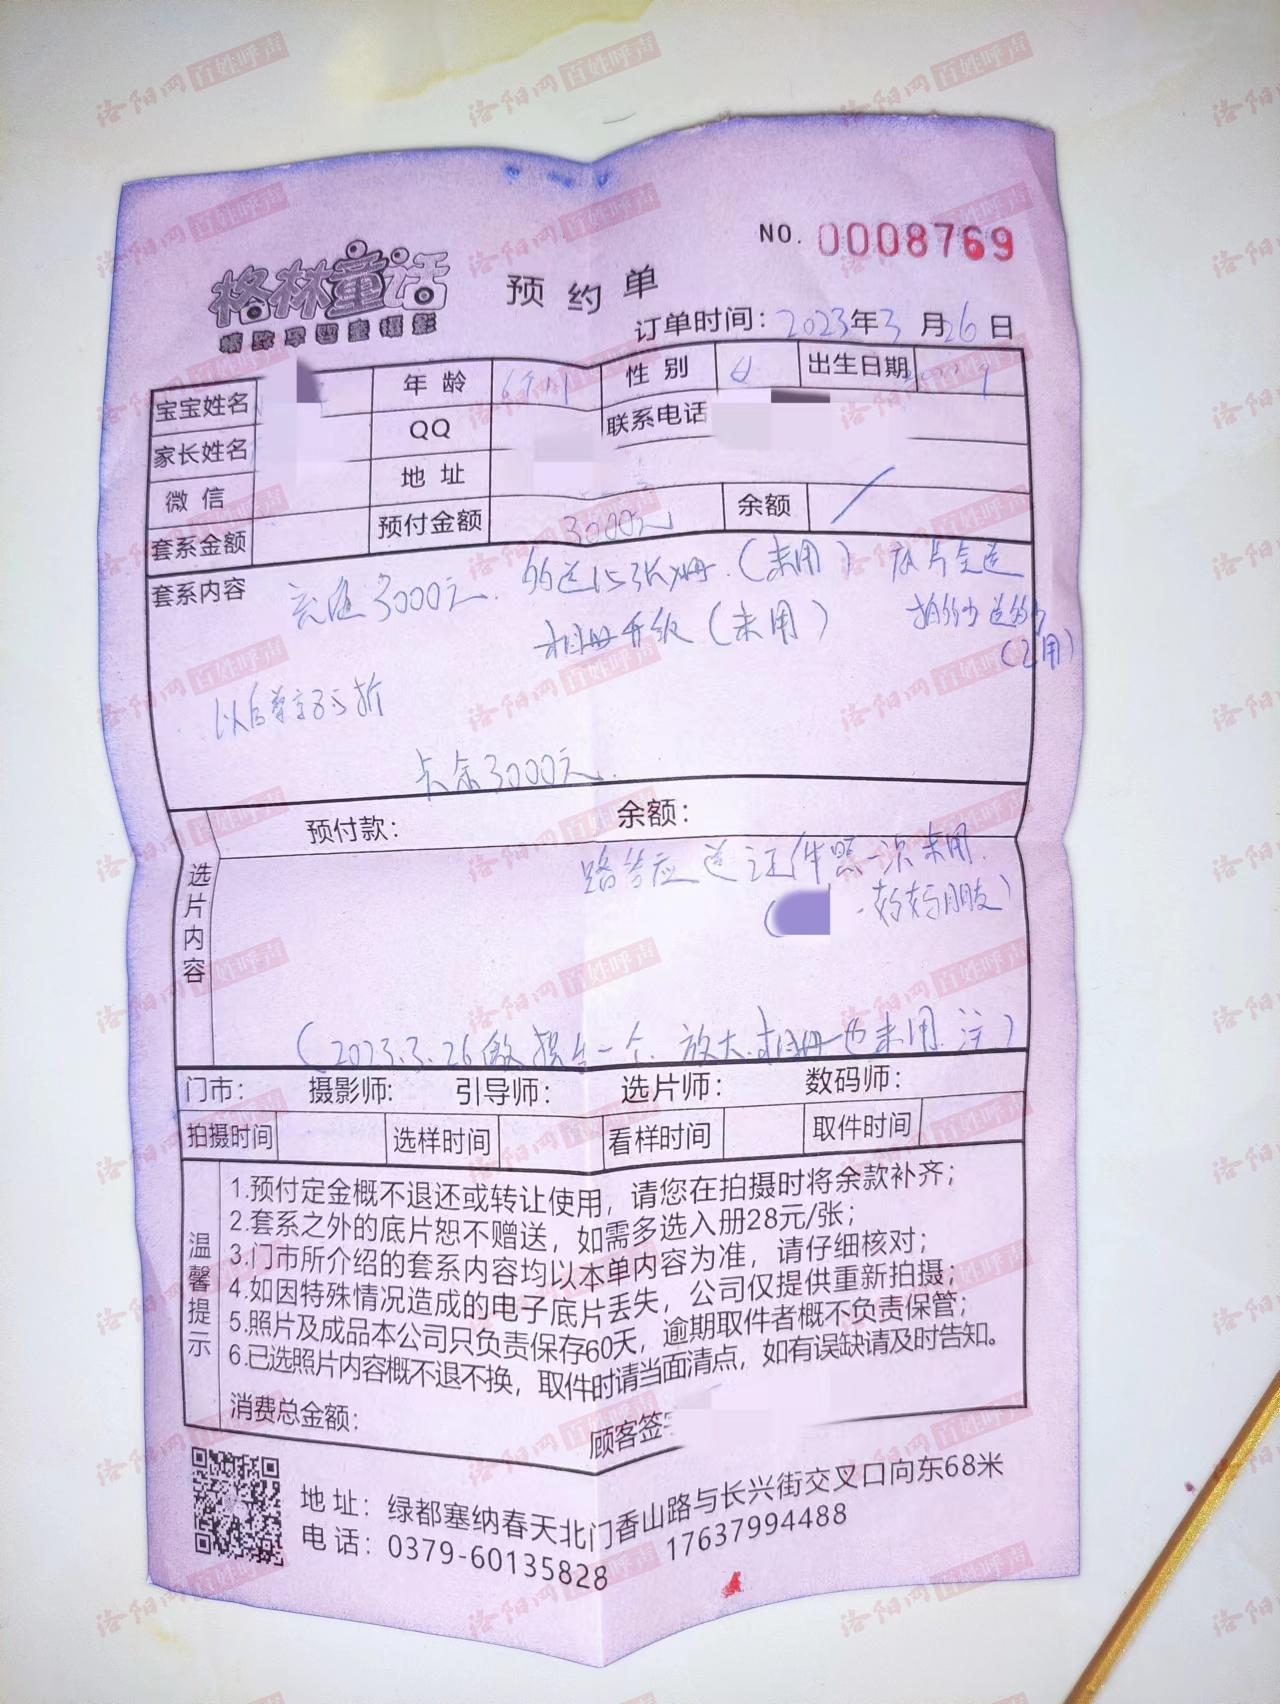 NO. 0008769
格林童话
精致孕婴童摄影
预约单
订单时间：2023年3月26日
宝宝姓名 年龄 性别 女 出生日期
家长姓名 QQ 联系电话
微信 地址
套系金额 预付金额 3000元 余额 /
套系内容 充值3000元. 送15张册.（未用） 底片全送
相册升级（未用） 拍多少送多少
（已用）
以后享345折
卡余3000元.
预付款： 余额：
选片内容
答应送证件照一次未用.
（ 好朋友）
（2023.3.26 一个. 放大.相册也未用.注）
门市： 摄影师: 引导师： 选片师： 数码师：
拍摄时间 选样时间 看样时间 取件时间
温馨提示
1.预付定金概不退还或转让使用，请您在拍摄时将余款补齐；
2.套系之外的底片恕不赠送，如需多选入册28元/张；
3.门市所介绍的套系内容均以本单内容为准，请仔细核对；
4.如因特殊情况造成的电子底片丢失，公司仅提供重新拍摄；
5.照片及成品本公司只负责保存60天，逾期取件者概不负责保管；
6.已选照片内容概不退不换，取件时请当面清点，如有误缺请及时告知。
消费总金额： 顾客签字
地址：绿都塞纳春天北门香山路与长兴街交叉口向东68米
电话：0379-60135828 17637994488
洛阳网 百姓呼声